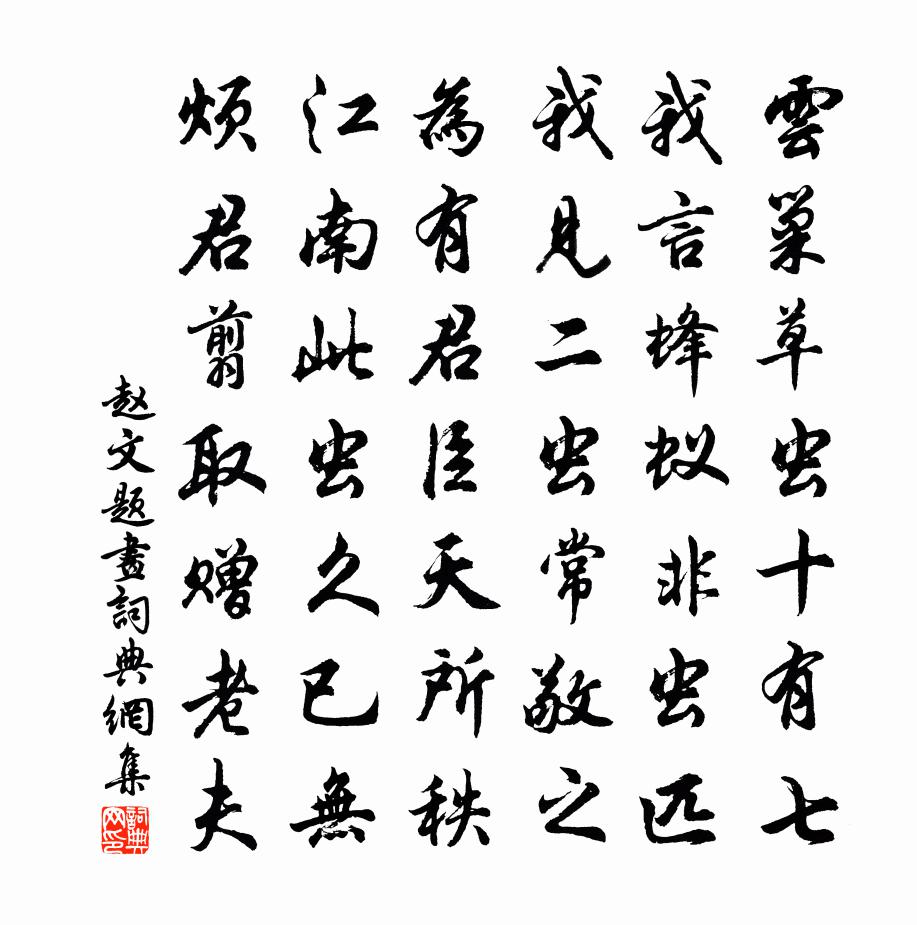 雲巢草虫十有七
我言蜂蚁非虫匹
我見二虫常敬之
為有君臣天所秩
江南此虫久已無
煩君翦取贈老夫
赵文题畫詞典網集
詞典网印